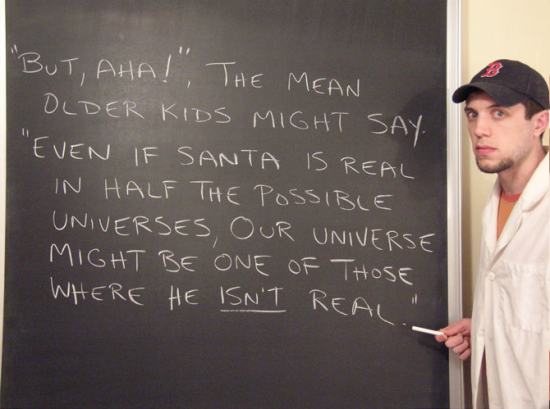 "BUT, AHA!", THE MEAN
OLDER KIDS MIGHT SAY.
"EVEN IF SANTA IS REAL
IN HALF THE POSSIBLE
UNIVERSES, OUR UNIVERSE
MIGHT BE ONE OF THOSE
WHERE HE ISN'T REAL."
B